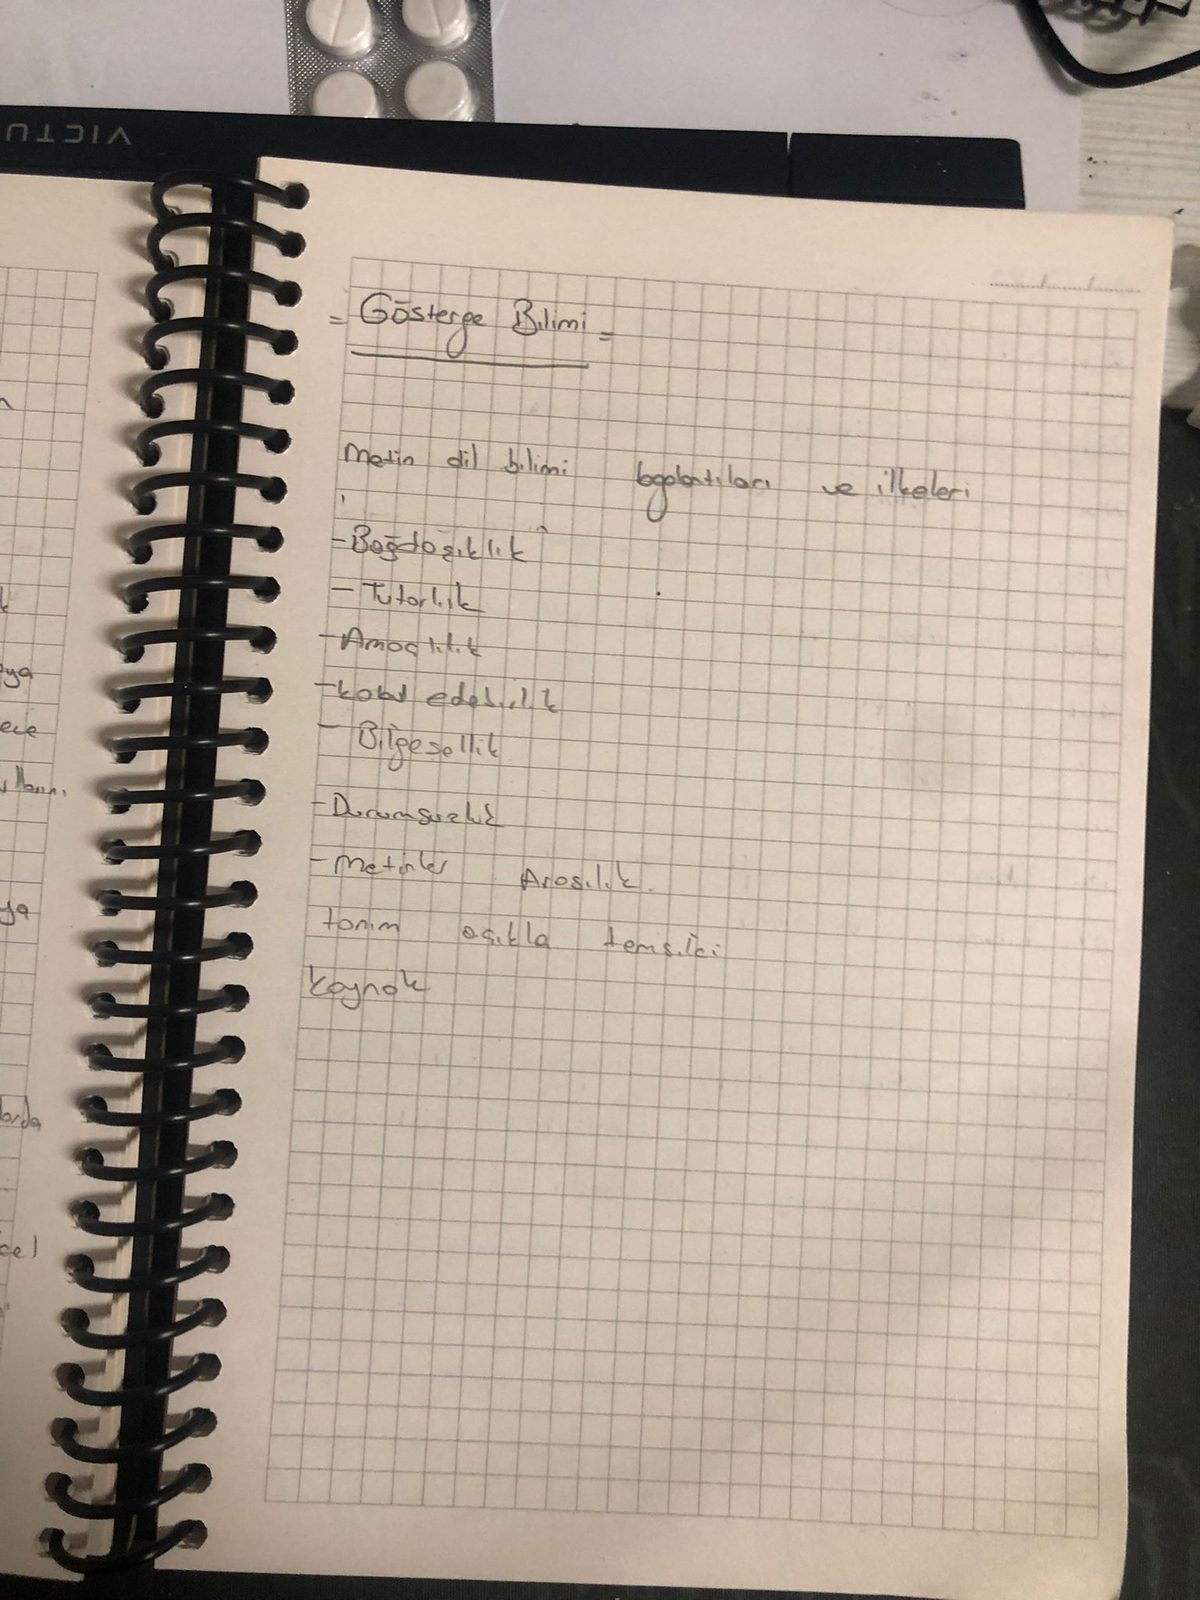 VICTU
= Gösterge Bilimi =
Metin dil bilimi bgalantıları ve ilkeleri
- Bağdaşıklık
- Tutarlılık
- Amaçlılık
- kabul edebilirlik
- Bilgesellik
- Durumsuzluk
- Metinler Arasılık.
tanım açıkla temsilci
kaynak
eya
ece
ya
larda
cel